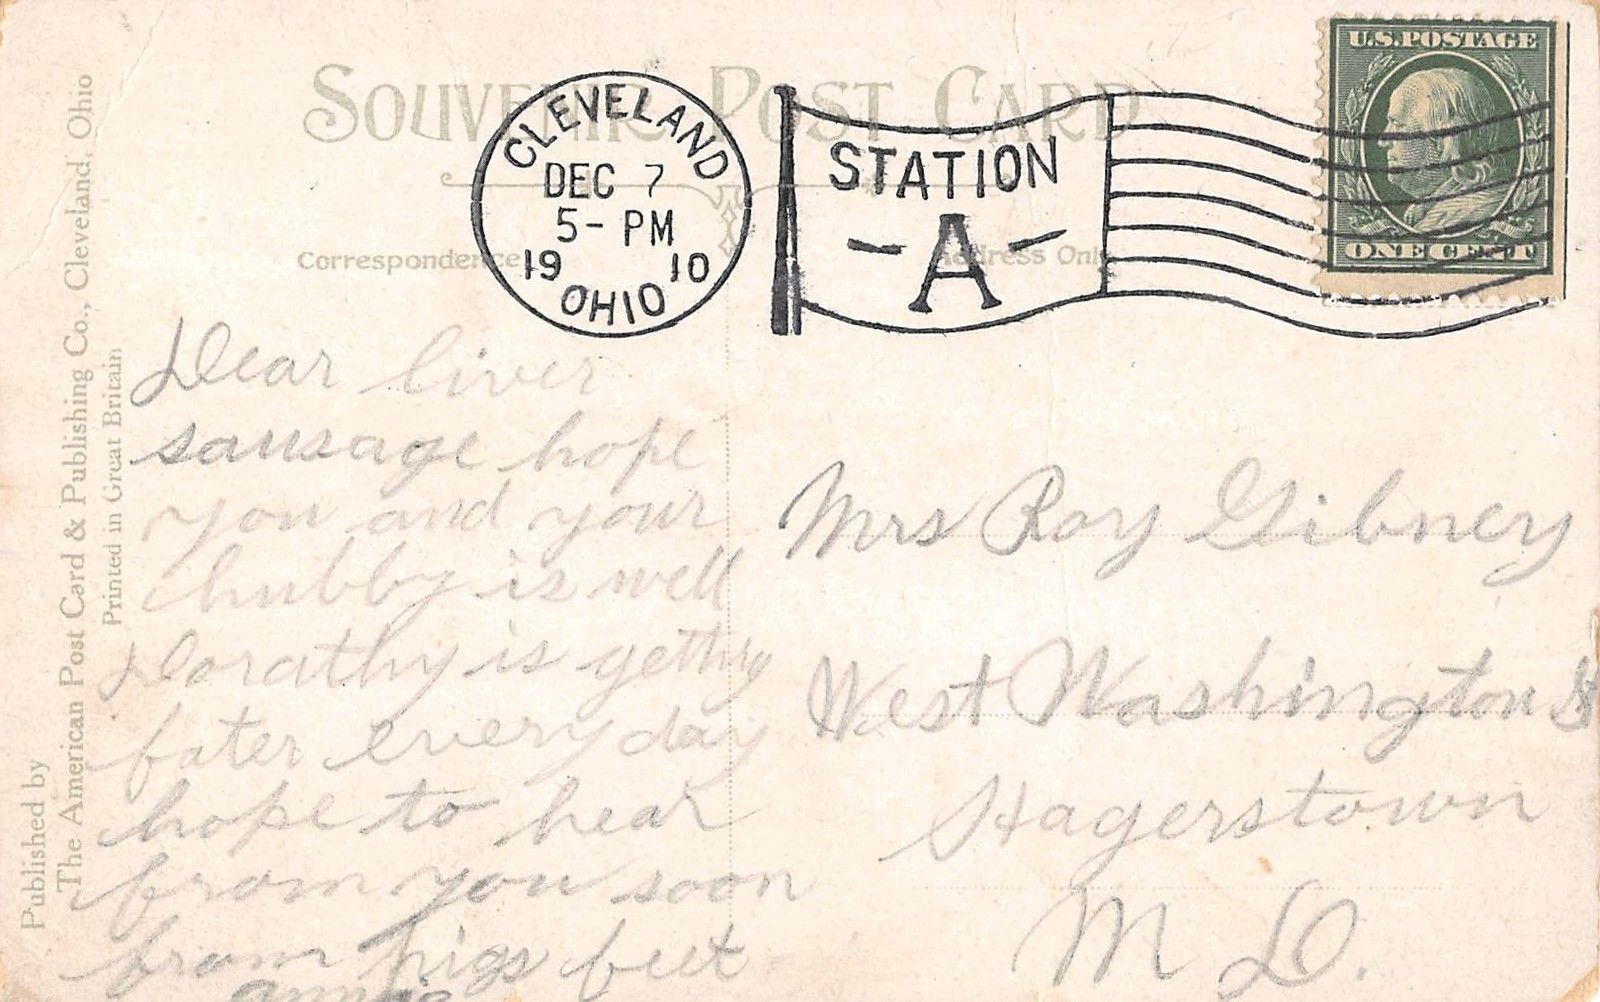 SOUVENIR POST CARD
CLEVELAND
DEC 7
5- PM
19 10
OHIO
STATION
- A -
U.S.POSTAGE
ONE CENT
Correspondence
Address Only
Published by
The American Post Card & Publishing Co., Cleveland, Ohio
Printed in Great Britain
Dear liver
sausage hope
you and your
hubby is well
Dorathy is getting
fater every day
hope to hear
from you soon
from pigs feet
annie
Mrs Roy Gibney
West Washington St
Hagerstown
M D.